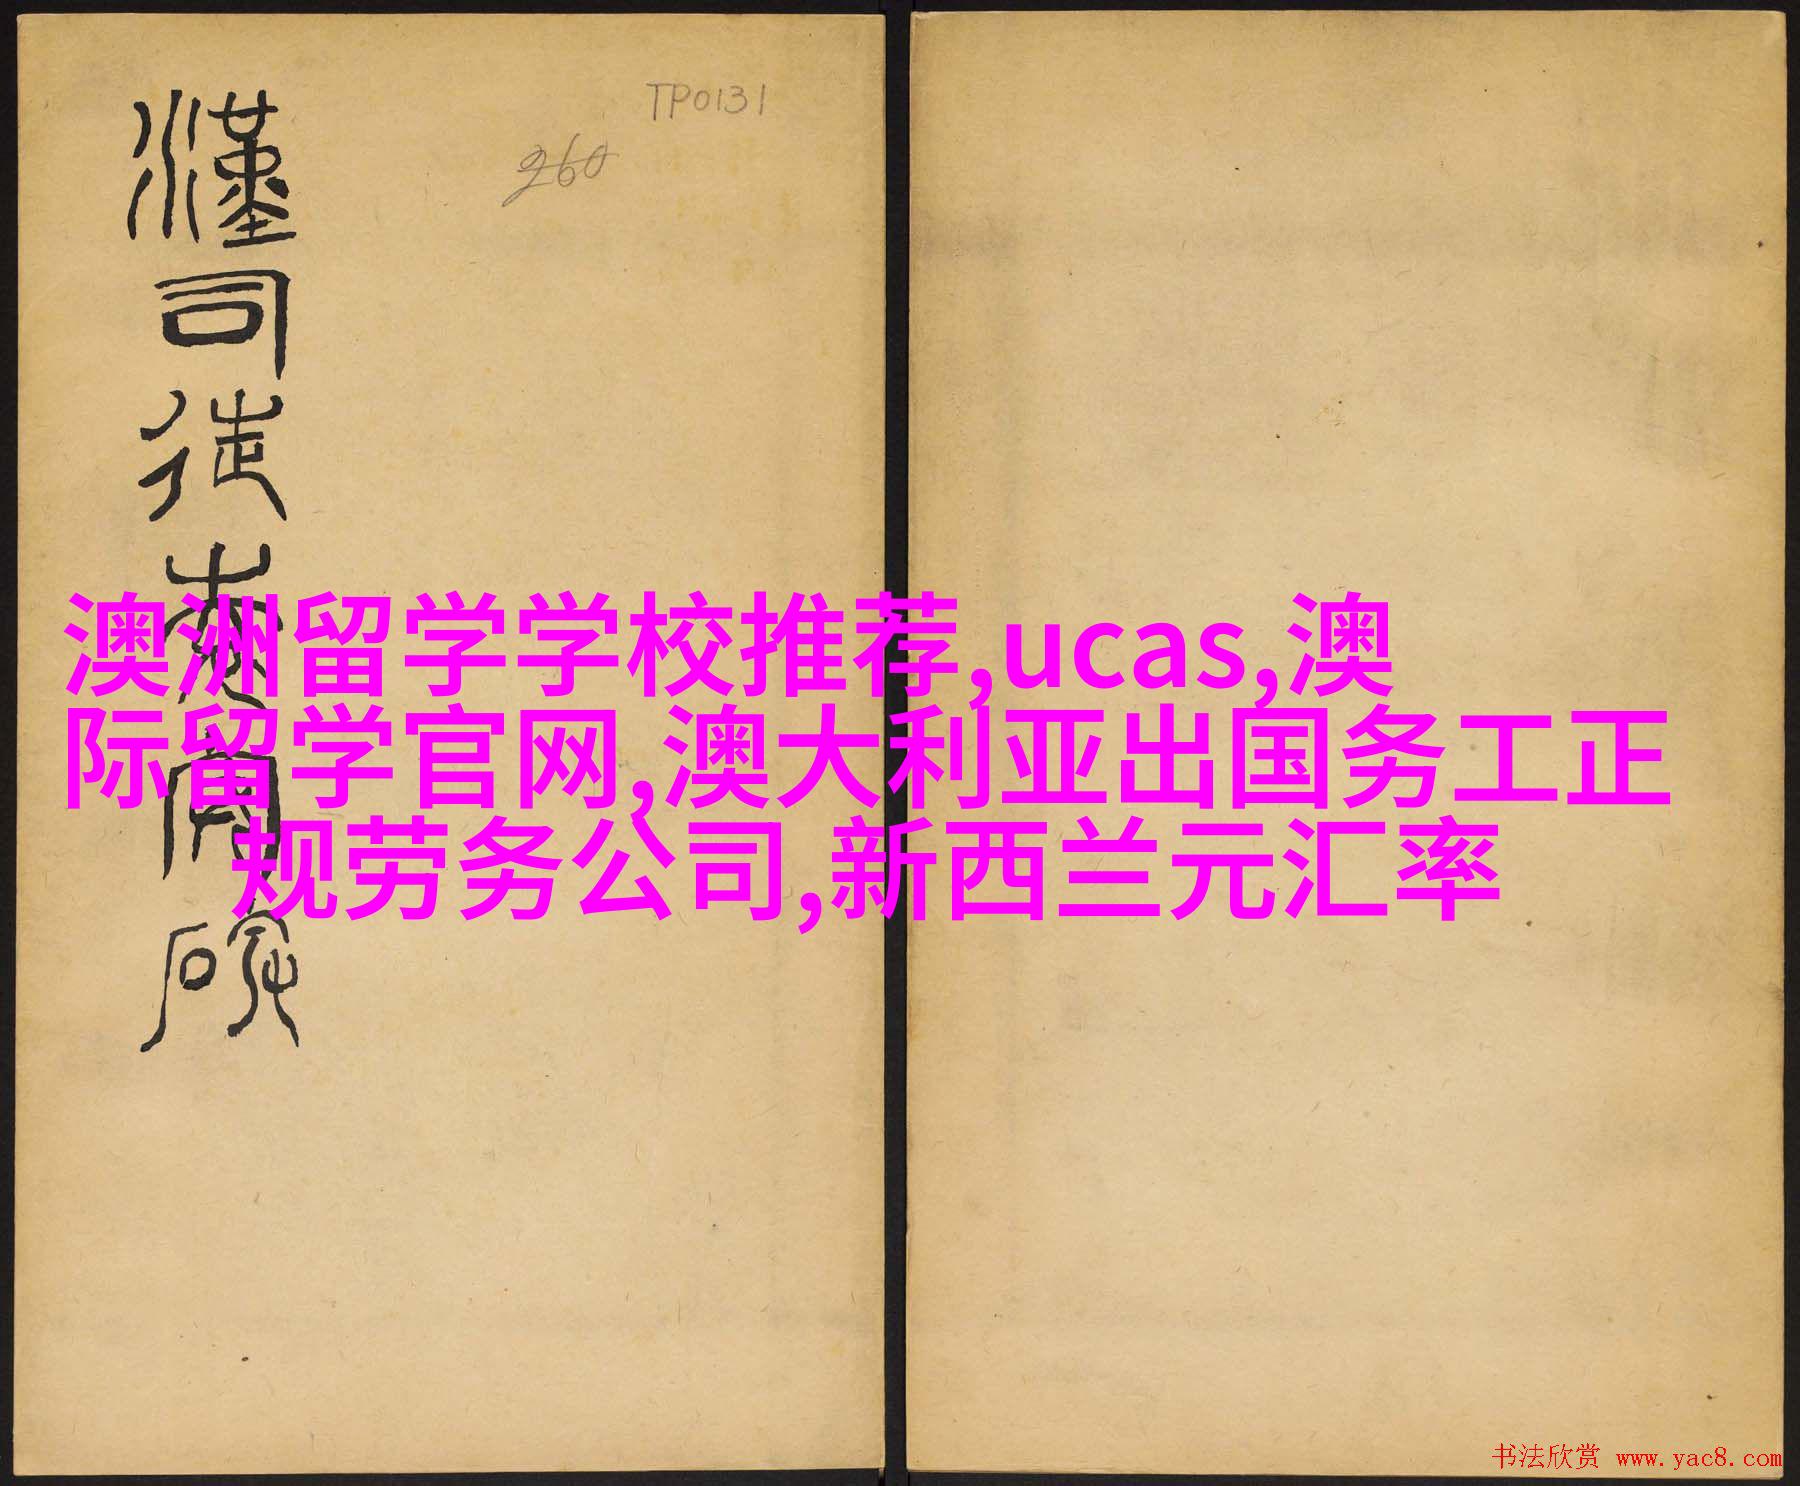 TP0131
260
漢司徒袁安碑
澳洲留学学校推荐,ucas,澳
际留学官网,澳大利亚出国务工正
规劳务公司,新西兰元汇率
书法欣赏 www.yac8.com